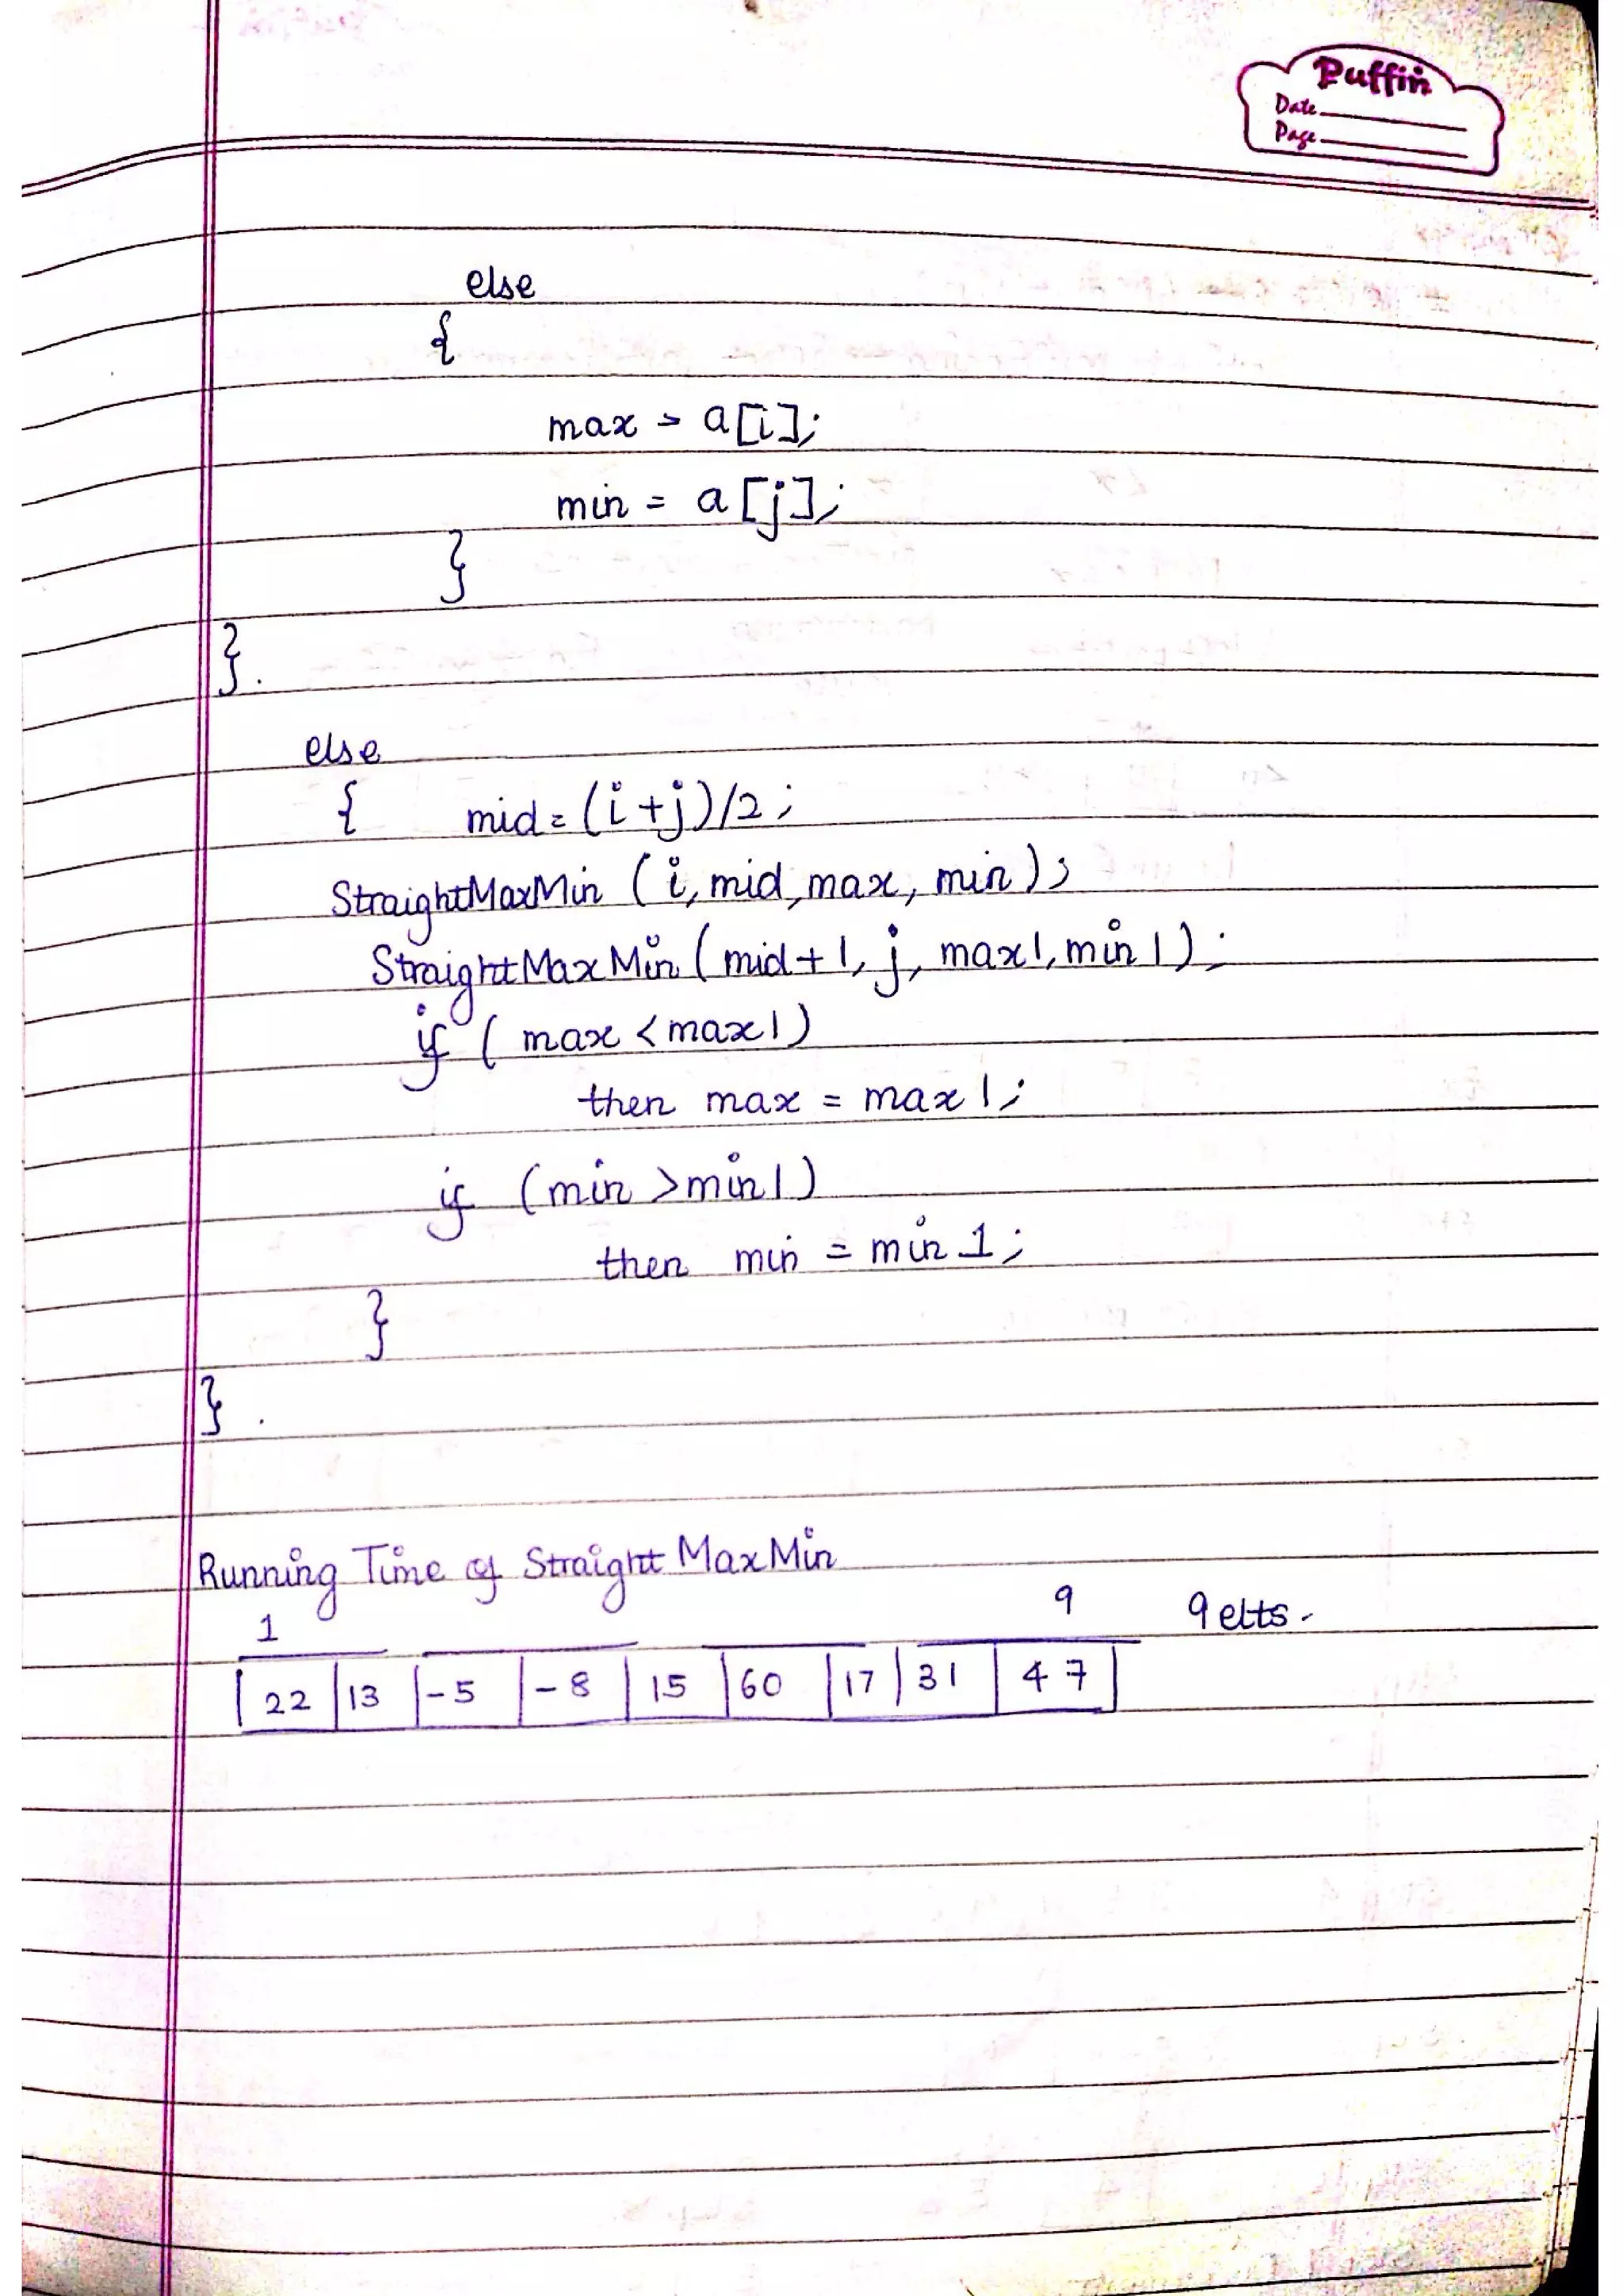 Puffin
Date
Page
else
{
max = a[i];
min = a[j];
}
}.
else
{ mid = (i+j)/2;
StraightMaxMin (i, mid, max, min);
StraightMaxMin (mid+1, j, max1, min1);
if (max < max1)
then max = max1;
if (min > min1)
then min = min1;
}
}.
Running Time of Straight MaxMin
1 9 9 elts.
22 13 -5 -8 15 60 17 31 47